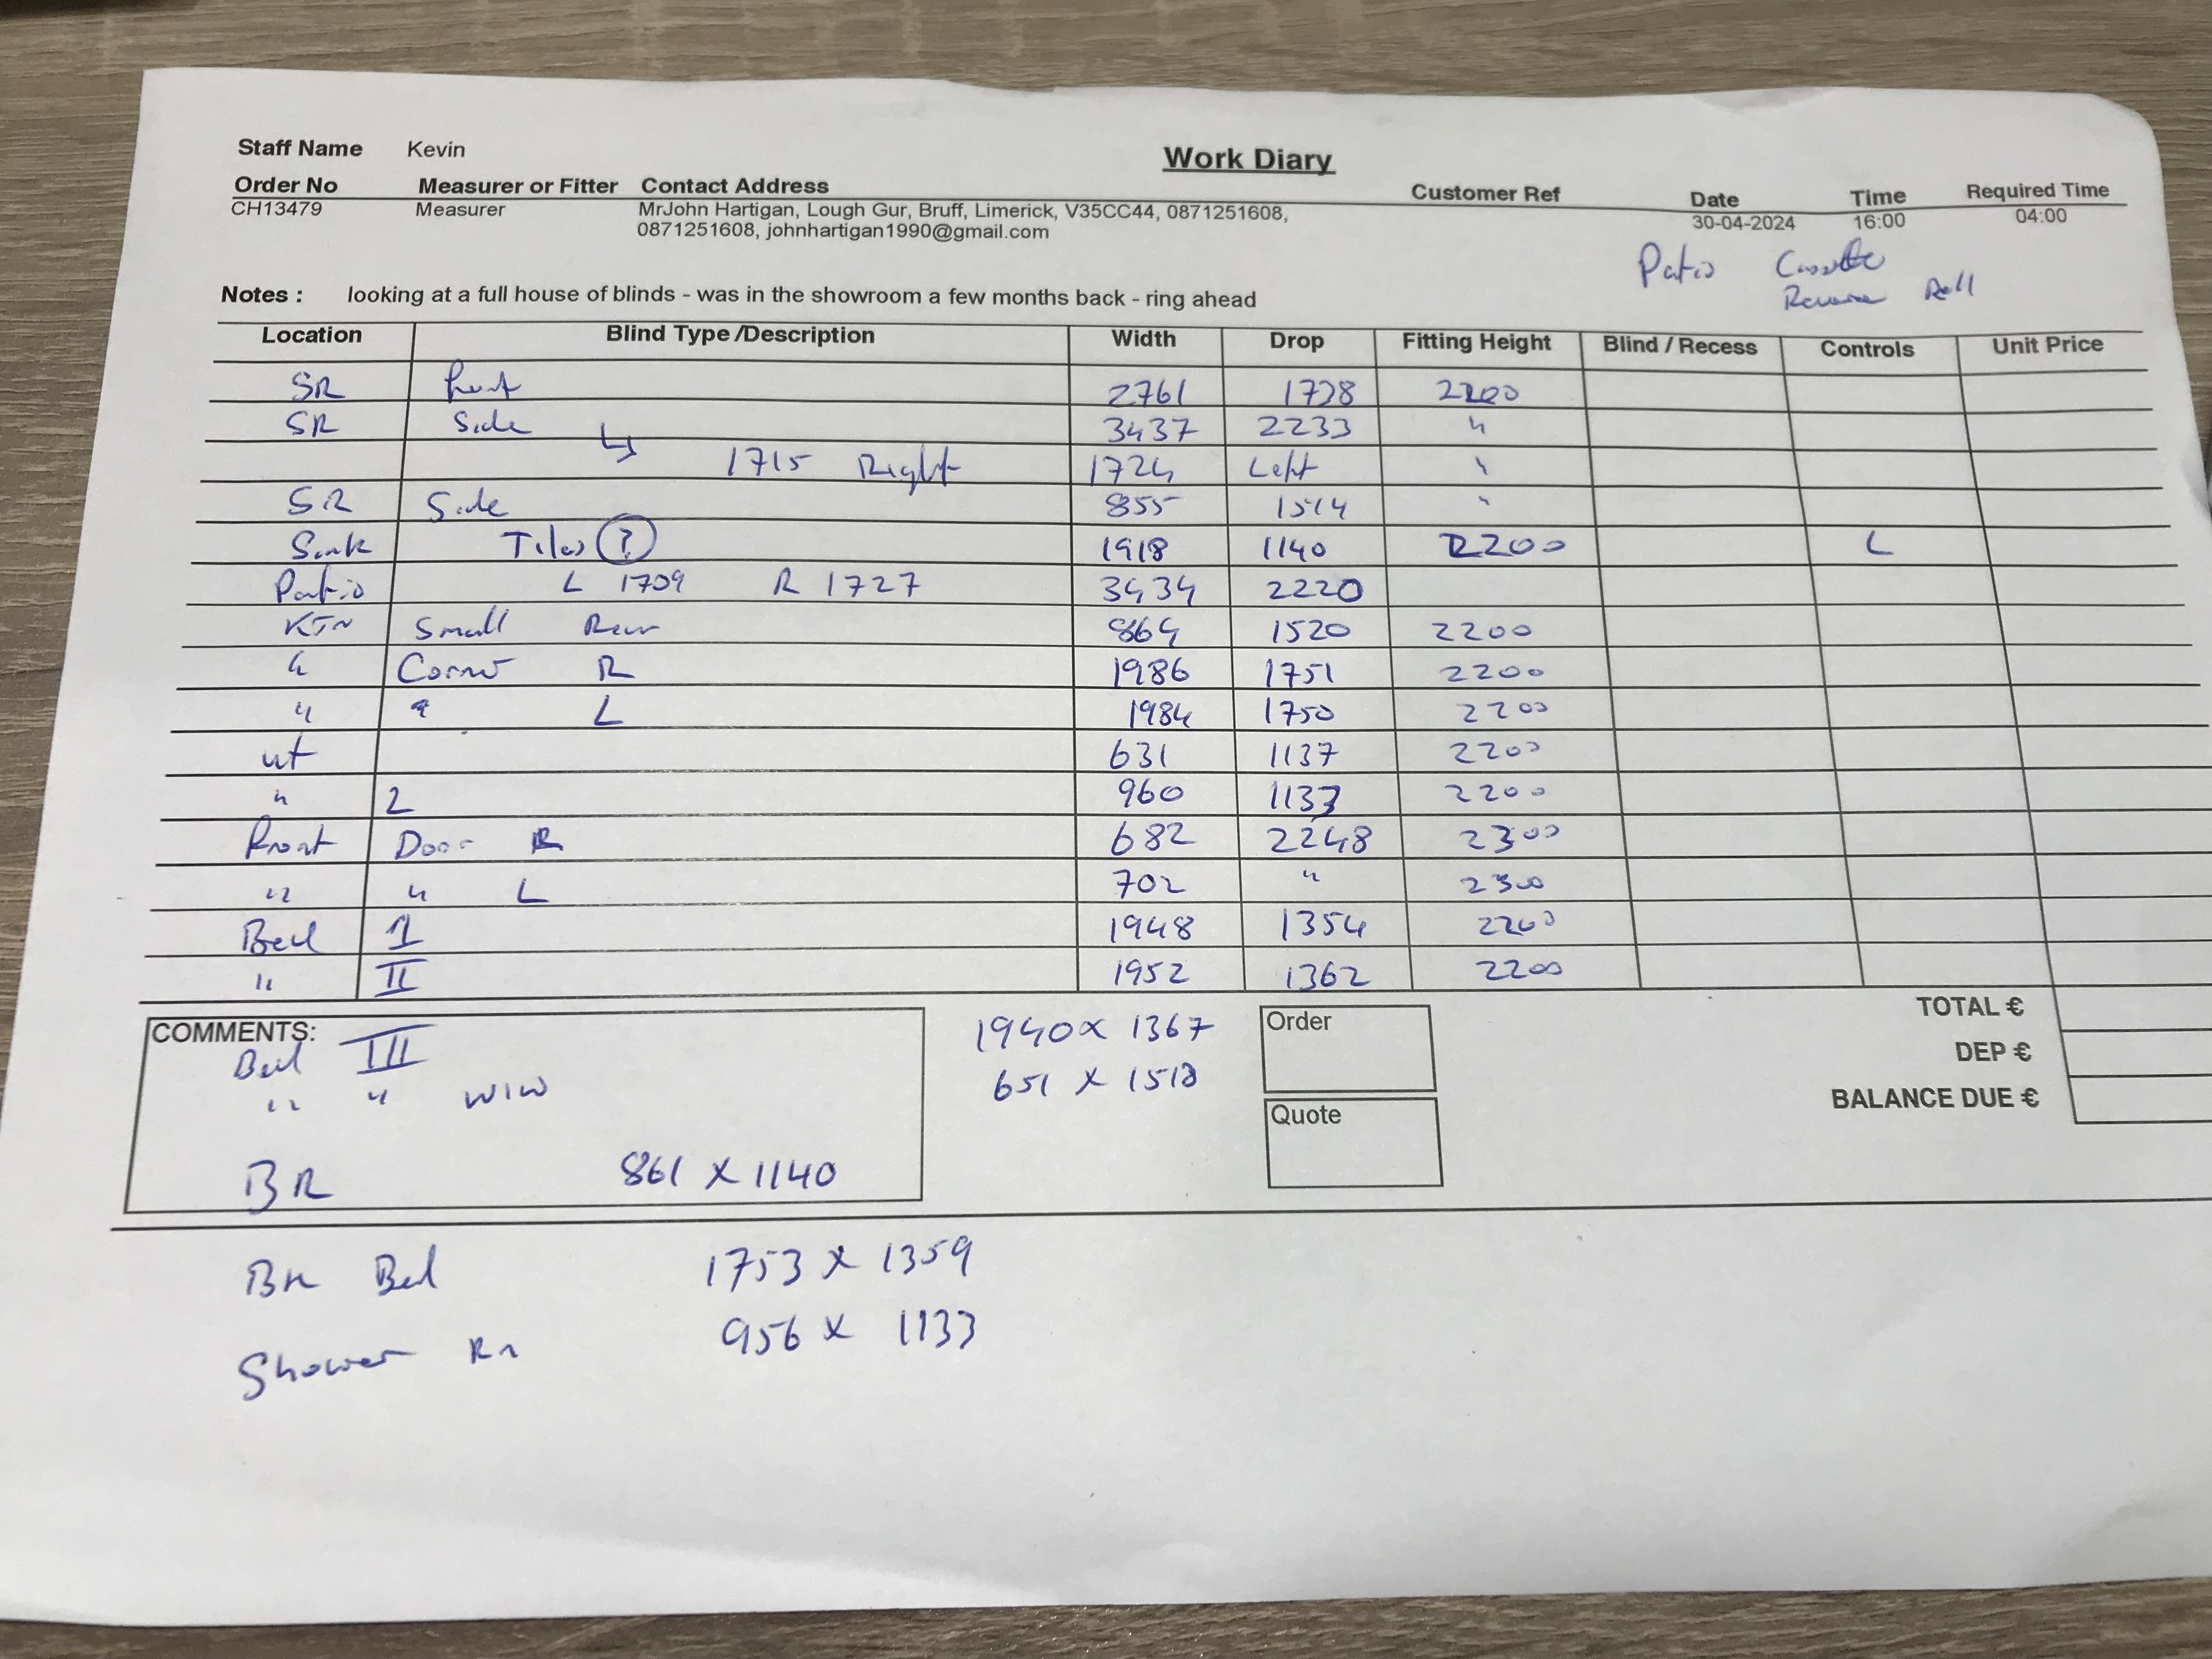 Work Diary
Staff Name Kevin
Order No Measurer or Fitter Contact Address Customer Ref Date Time Required Time
CH13479 Measurer MrJohn Hartigan, Lough Gur, Bruff, Limerick, V35CC44, 0871251608, 30-04-2024 16:00 04:00
0871251608, johnhartigan1990@gmail.com
Patio Cassette
Reverse Roll
Notes : looking at a full house of blinds - was in the showroom a few months back - ring ahead
Location Blind Type /Description Width Drop Fitting Height Blind / Recess Controls Unit Price
SR Front 2761 1738 2200
SR Side 3437 2233 "
↳ 1715 Right 1724 Left "
SR Side 855 1514 "
Sink Tiles ? 1918 1140 2200 L
Patio L 1709 R 1727 3434 2220
KTN Small Rear 864 1520 2200
" Corner R 1986 1751 2200
" " L 1984 1750 2200
ut 631 1137 2200
" 2 960 1133 2200
Front Door R 682 2248 2300
" " L 702 " 2300
Bed I 1948 1354 2200
" II 1952 1362 2200
COMMENTS:
Bed III 1940 x 1367
" " WIW 651 x 1518
BR 861 x 1140
Order
Quote
TOTAL €
DEP €
BALANCE DUE €
BR Bed 1753 x 1359
Shower Rm 956 x 1133